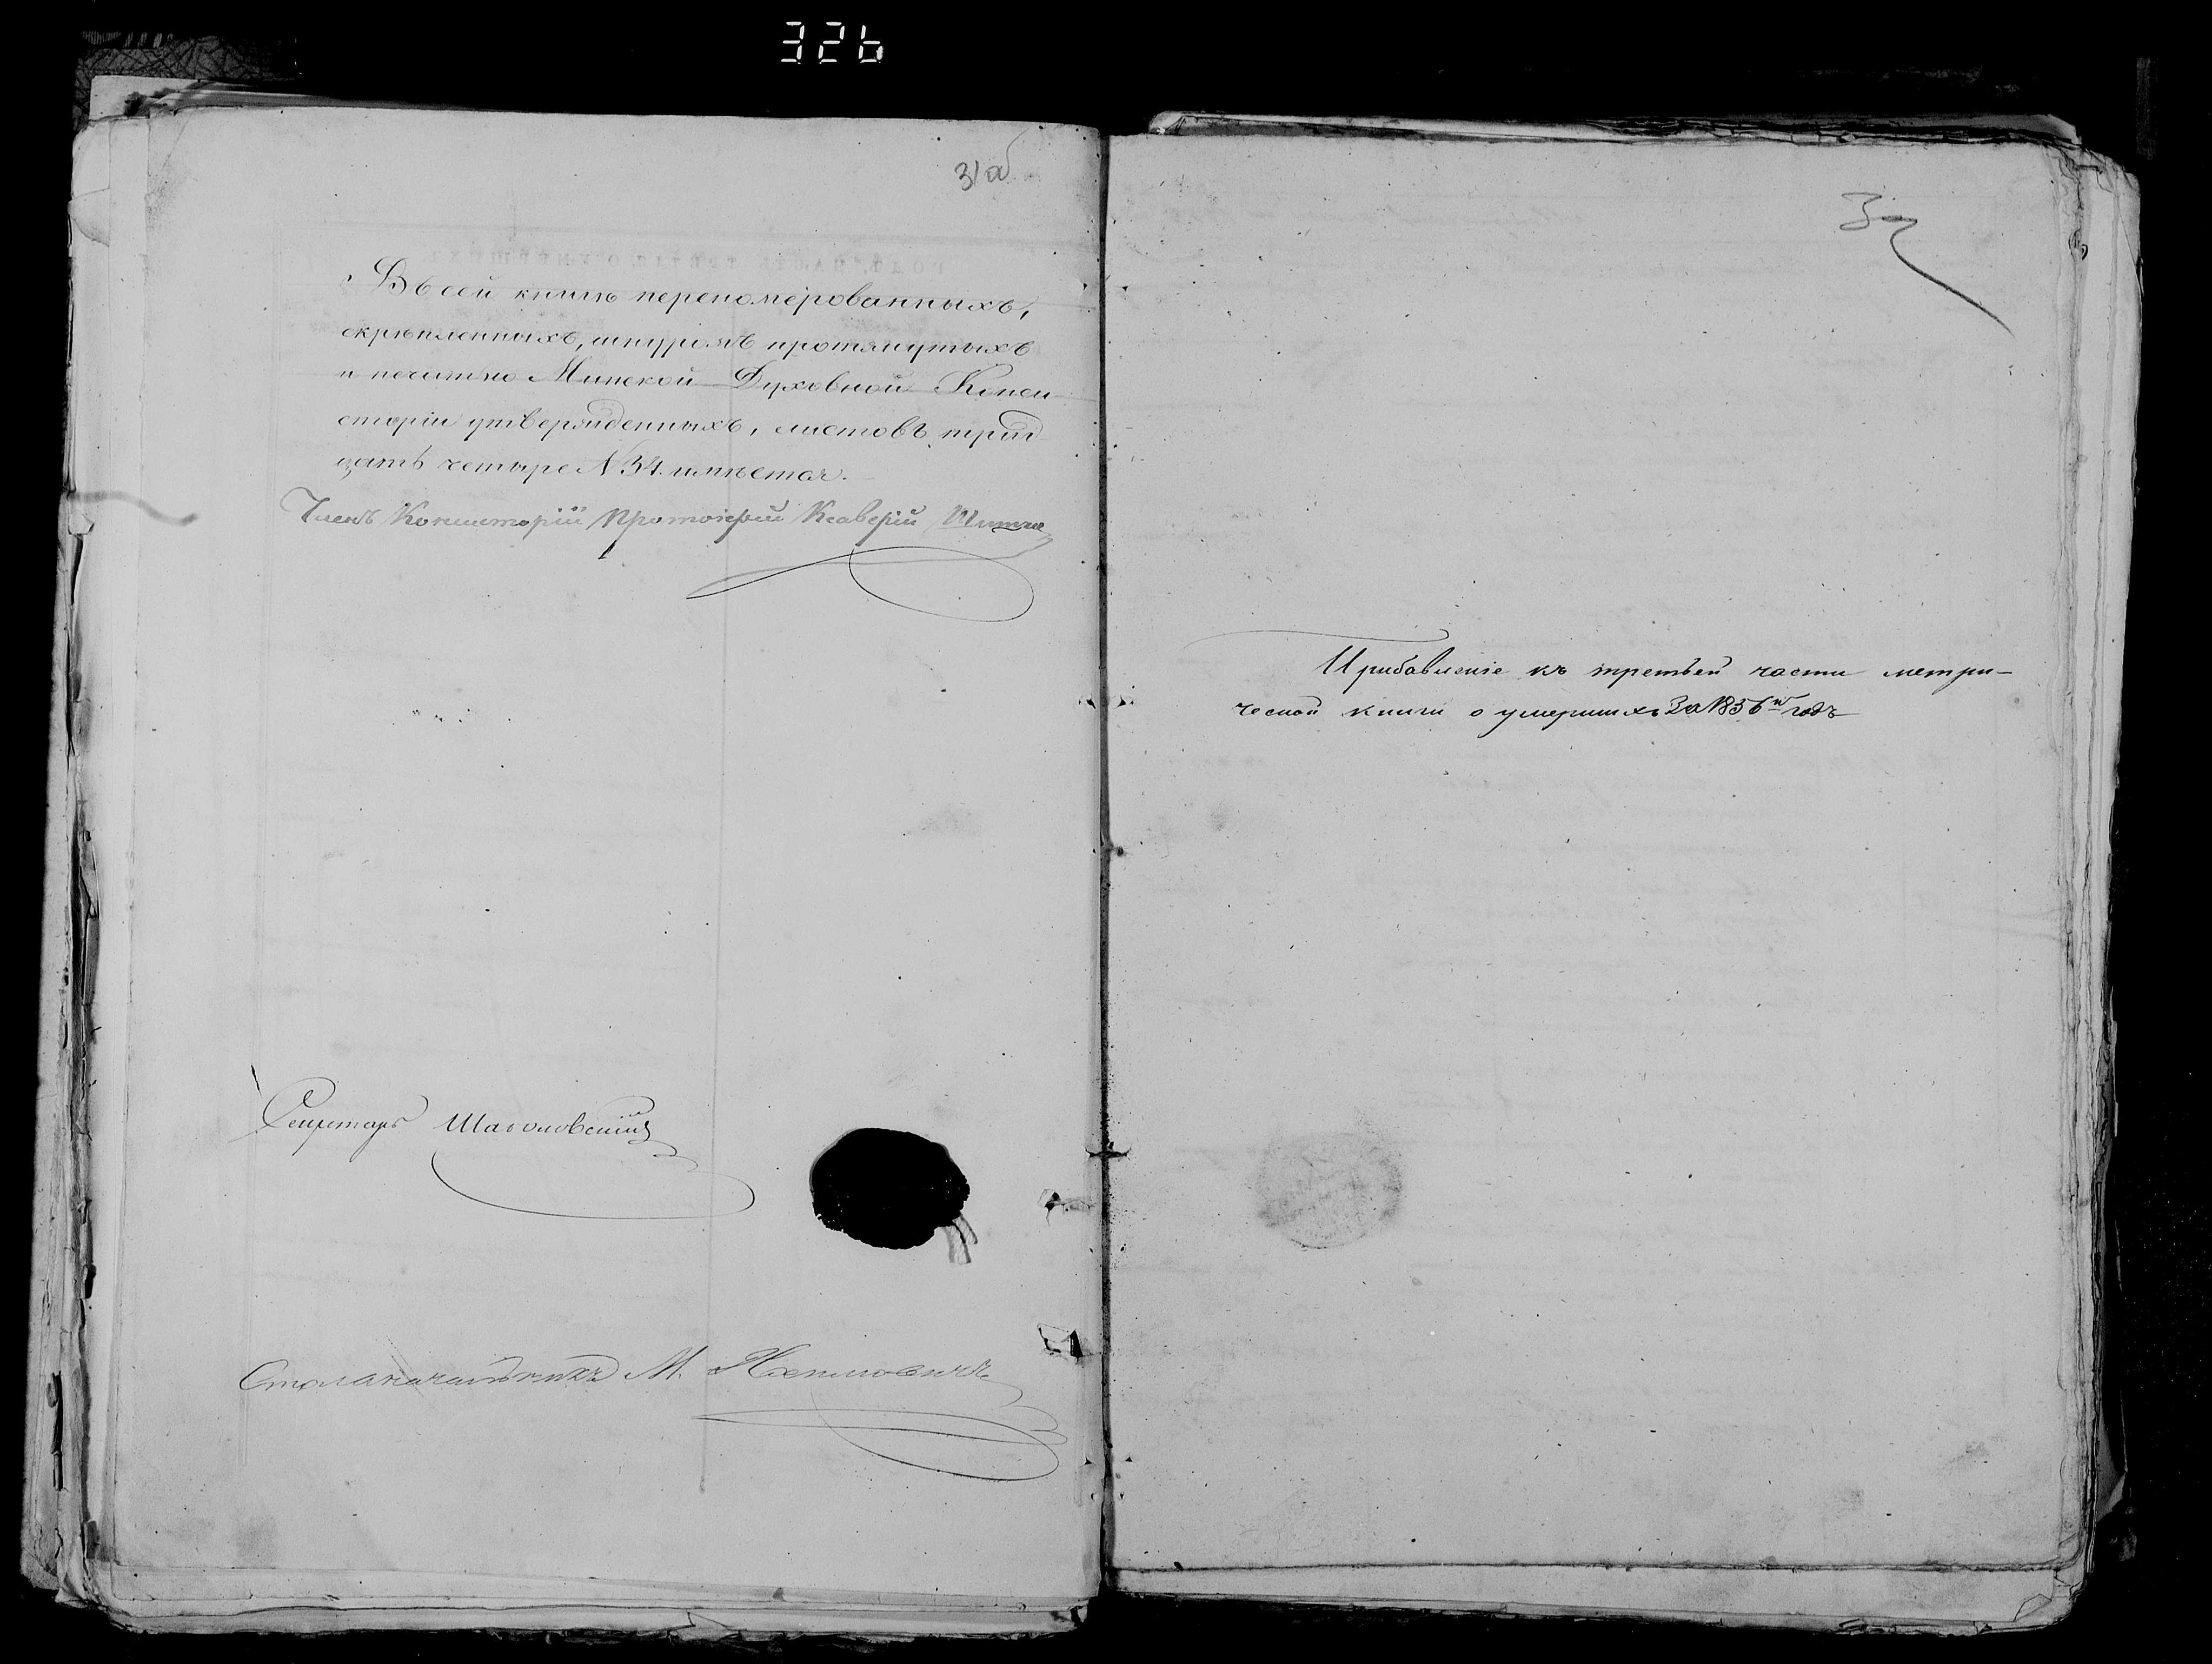 326
31 об
Въ сей книгѣ перепомерованныхъ,
скрѣпленныхъ, шнуромъ протянутыхъ
и печатью Минской Духовной Конси-
сторіи утвержденныхъ, листовъ трид-
цать четыре № 34. имѣется.
Членъ Консисторіи Протоіерей Ксаверій
Секретарь
Столоначальникъ М.
32
Прибавленіе къ третьей части метри-
ческой книги о умершихъ За 1856й годъ